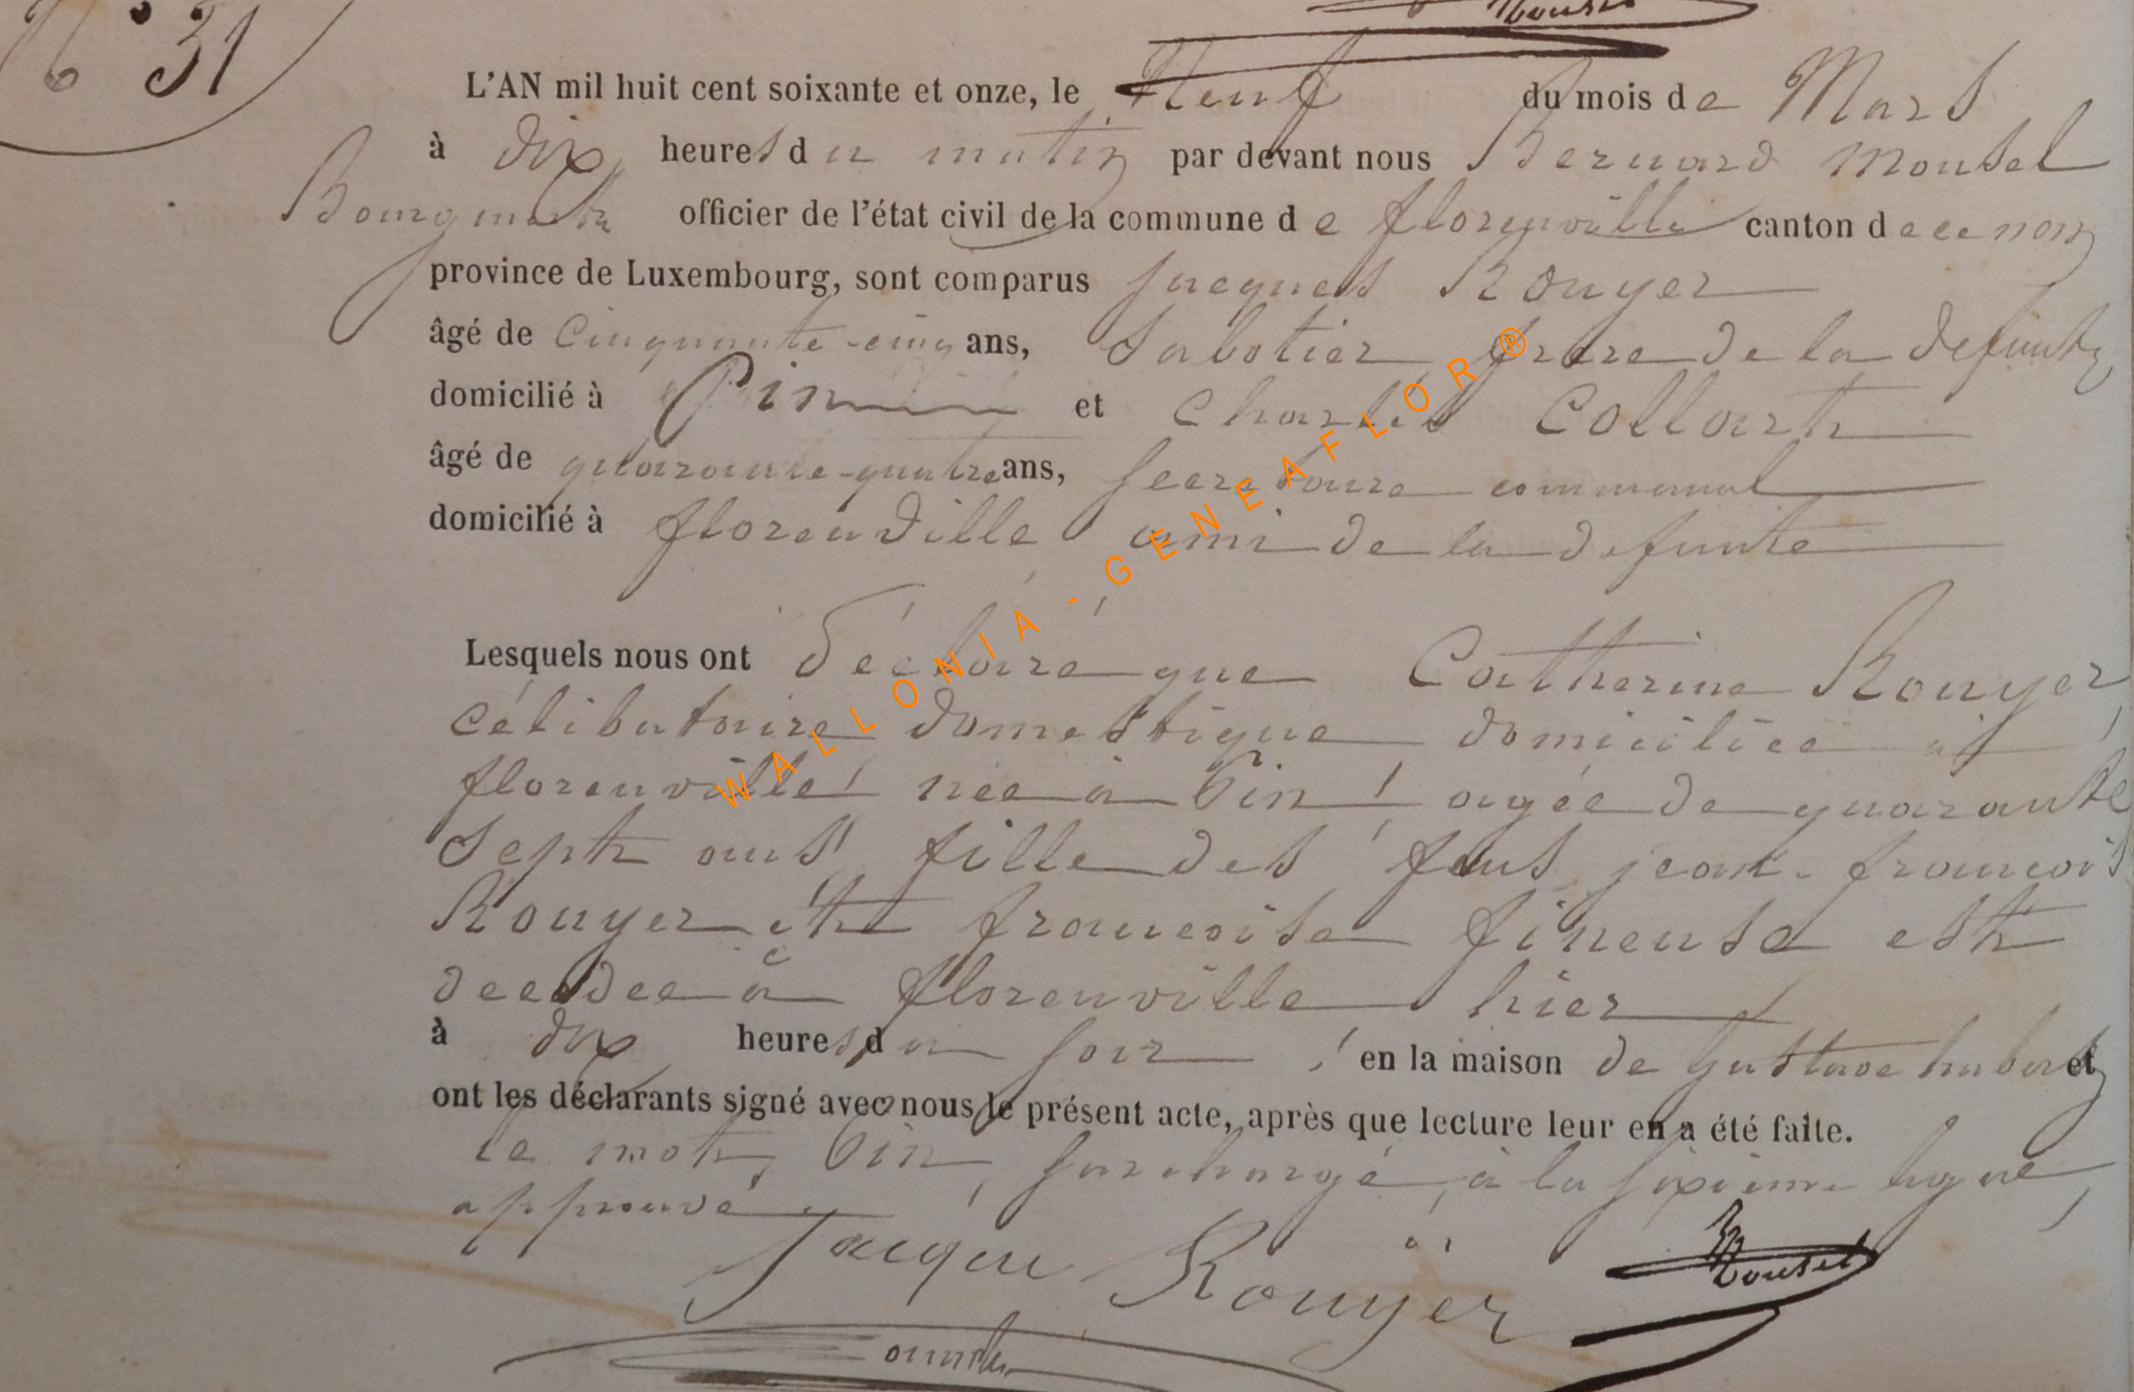 Mousel
N° 31
L'AN mil huit cent soixante et onze, le Neuf du mois de Mars
à dix heures du matin par devant nous Bernard Mousel
Bourgmestre officier de l'état civil de la commune de florenville canton de ce nom
province de Luxembourg, sont comparus Jacques Rouyer
âgé de Cinquante-cinq ans, Sabotier frère de la defunte
domicilié à Pin et Charles Collart
âgé de quarante-quatre ans, secretaire communal
domicilié à florenville ami de la defunte
Lesquels nous ont déclaré que Catherine Rouyer,
célibataire domestique domiciliée à
florenville, née à Pin, agée de quarante
sept ans, fille des feus jean-françois
Rouyer et françoise fineuse est
decedee à florenville hier
à dix heures du soir, en la maison de gustave hubert et
ont les déclarants signé avec nous le présent acte, après que lecture leur en a été faite.
le mot, Pin, surchargé, à la sixième ligne,
approuvé.
Jacque Rouyer
Mousel
WALLONIA - GENEAFLOR ®